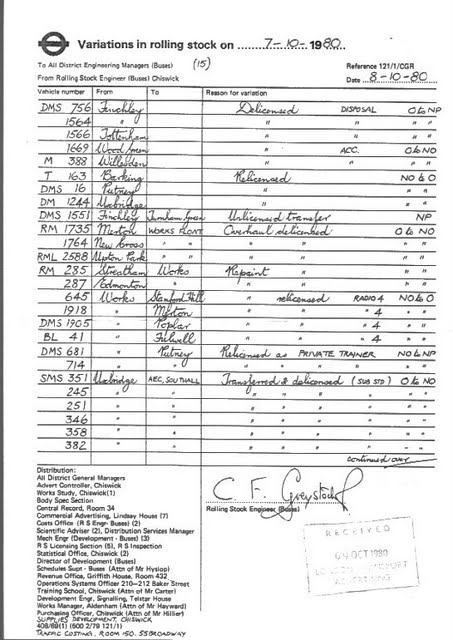 Variations in rolling stock on 7-10-1980
To All District Engineering Managers (Buses) (15) Reference 121/1/CGR
From Rolling Stock Engineer (Buses) Chiswick Date 8-10-80
Vehicle number From To Reason for variation
DMS 756 Finchley Delicensed DISPOSAL O to NP
1564 " " " " "
1566 Tottenham " " " "
1669 Wood Green " ACC. O to NO
M 388 Willesden " " " "
T 163 Barking Relicensed NO to O
DMS 16 Putney " " "
DM 1244 Uxbridge " " "
DMS 1551 Finchley Turnham Green Unlicensed transfer NP
RM 1735 Merton WORKS FLOAT Overhaul delicensed O to NO
1764 New Cross " " " " " "
RML 2588 Upton Park " " " " " "
RM 285 Streatham Works Repaint " " "
287 Edmonton " " " " "
645 Works Stamford Hill " relicensed RADIO 4 NO to O
1918 " Merton " " " 4 " "
DMS 1905 " Poplar " " " 4 " "
BL 41 " Fulwell " " " 4 " "
DMS 681 " Putney Relicensed as PRIVATE TRAINER NO to NP
714 " " " " " " " "
SMS 351 Uxbridge AEC, SOUTHALL Transferred & delicensed (SUB STD) O to NO
245 " " " " " " " "
251 " " " " " " " "
346 " " " " " " " "
358 " " " " " " " "
382 " " " " " " " "
continued over
Distribution:
All District General Managers
Advert Controller, Chiswick
Works Study, Chiswick(1)
Body Spec Section
Central Record, Room 34
Commercial Advertising, Lindsay House (7)
Costs Office (R S Engr- Buses) (2)
Scientific Adviser (2), Distribution Services Manager
Mech Engr (Development - Buses) (3)
R S Licensing Section (5), R S Inspection
Statistical Office, Chiswick (2)
Director of Development (Buses)
Schedules Supt - Buses (Attn of Mr Hyslop)
Revenue Office, Griffith House, Room 432
Operations Systems Officer 210-212 Baker Street
Training School, Chiswick (Attn of Mr Carter)
Development Engr, Signalling, Telstar House
Works Manager, Aldenham (Attn of Mr Hayward)
Purchasing Officer, Chiswick (Attn of Mr Hillier)
SUPPLIES DEVELOPMENT, CHISWICK
408/69(1) (500 2/79 121/1)
TRAFFIC COSTING, ROOM 150, 55 BROADWAY
C. F. Greystock
Rolling Stock Engineer (Buses)
RECEIVED
09 OCT 1980
LONDON TRANSPORT
ADVERTISING